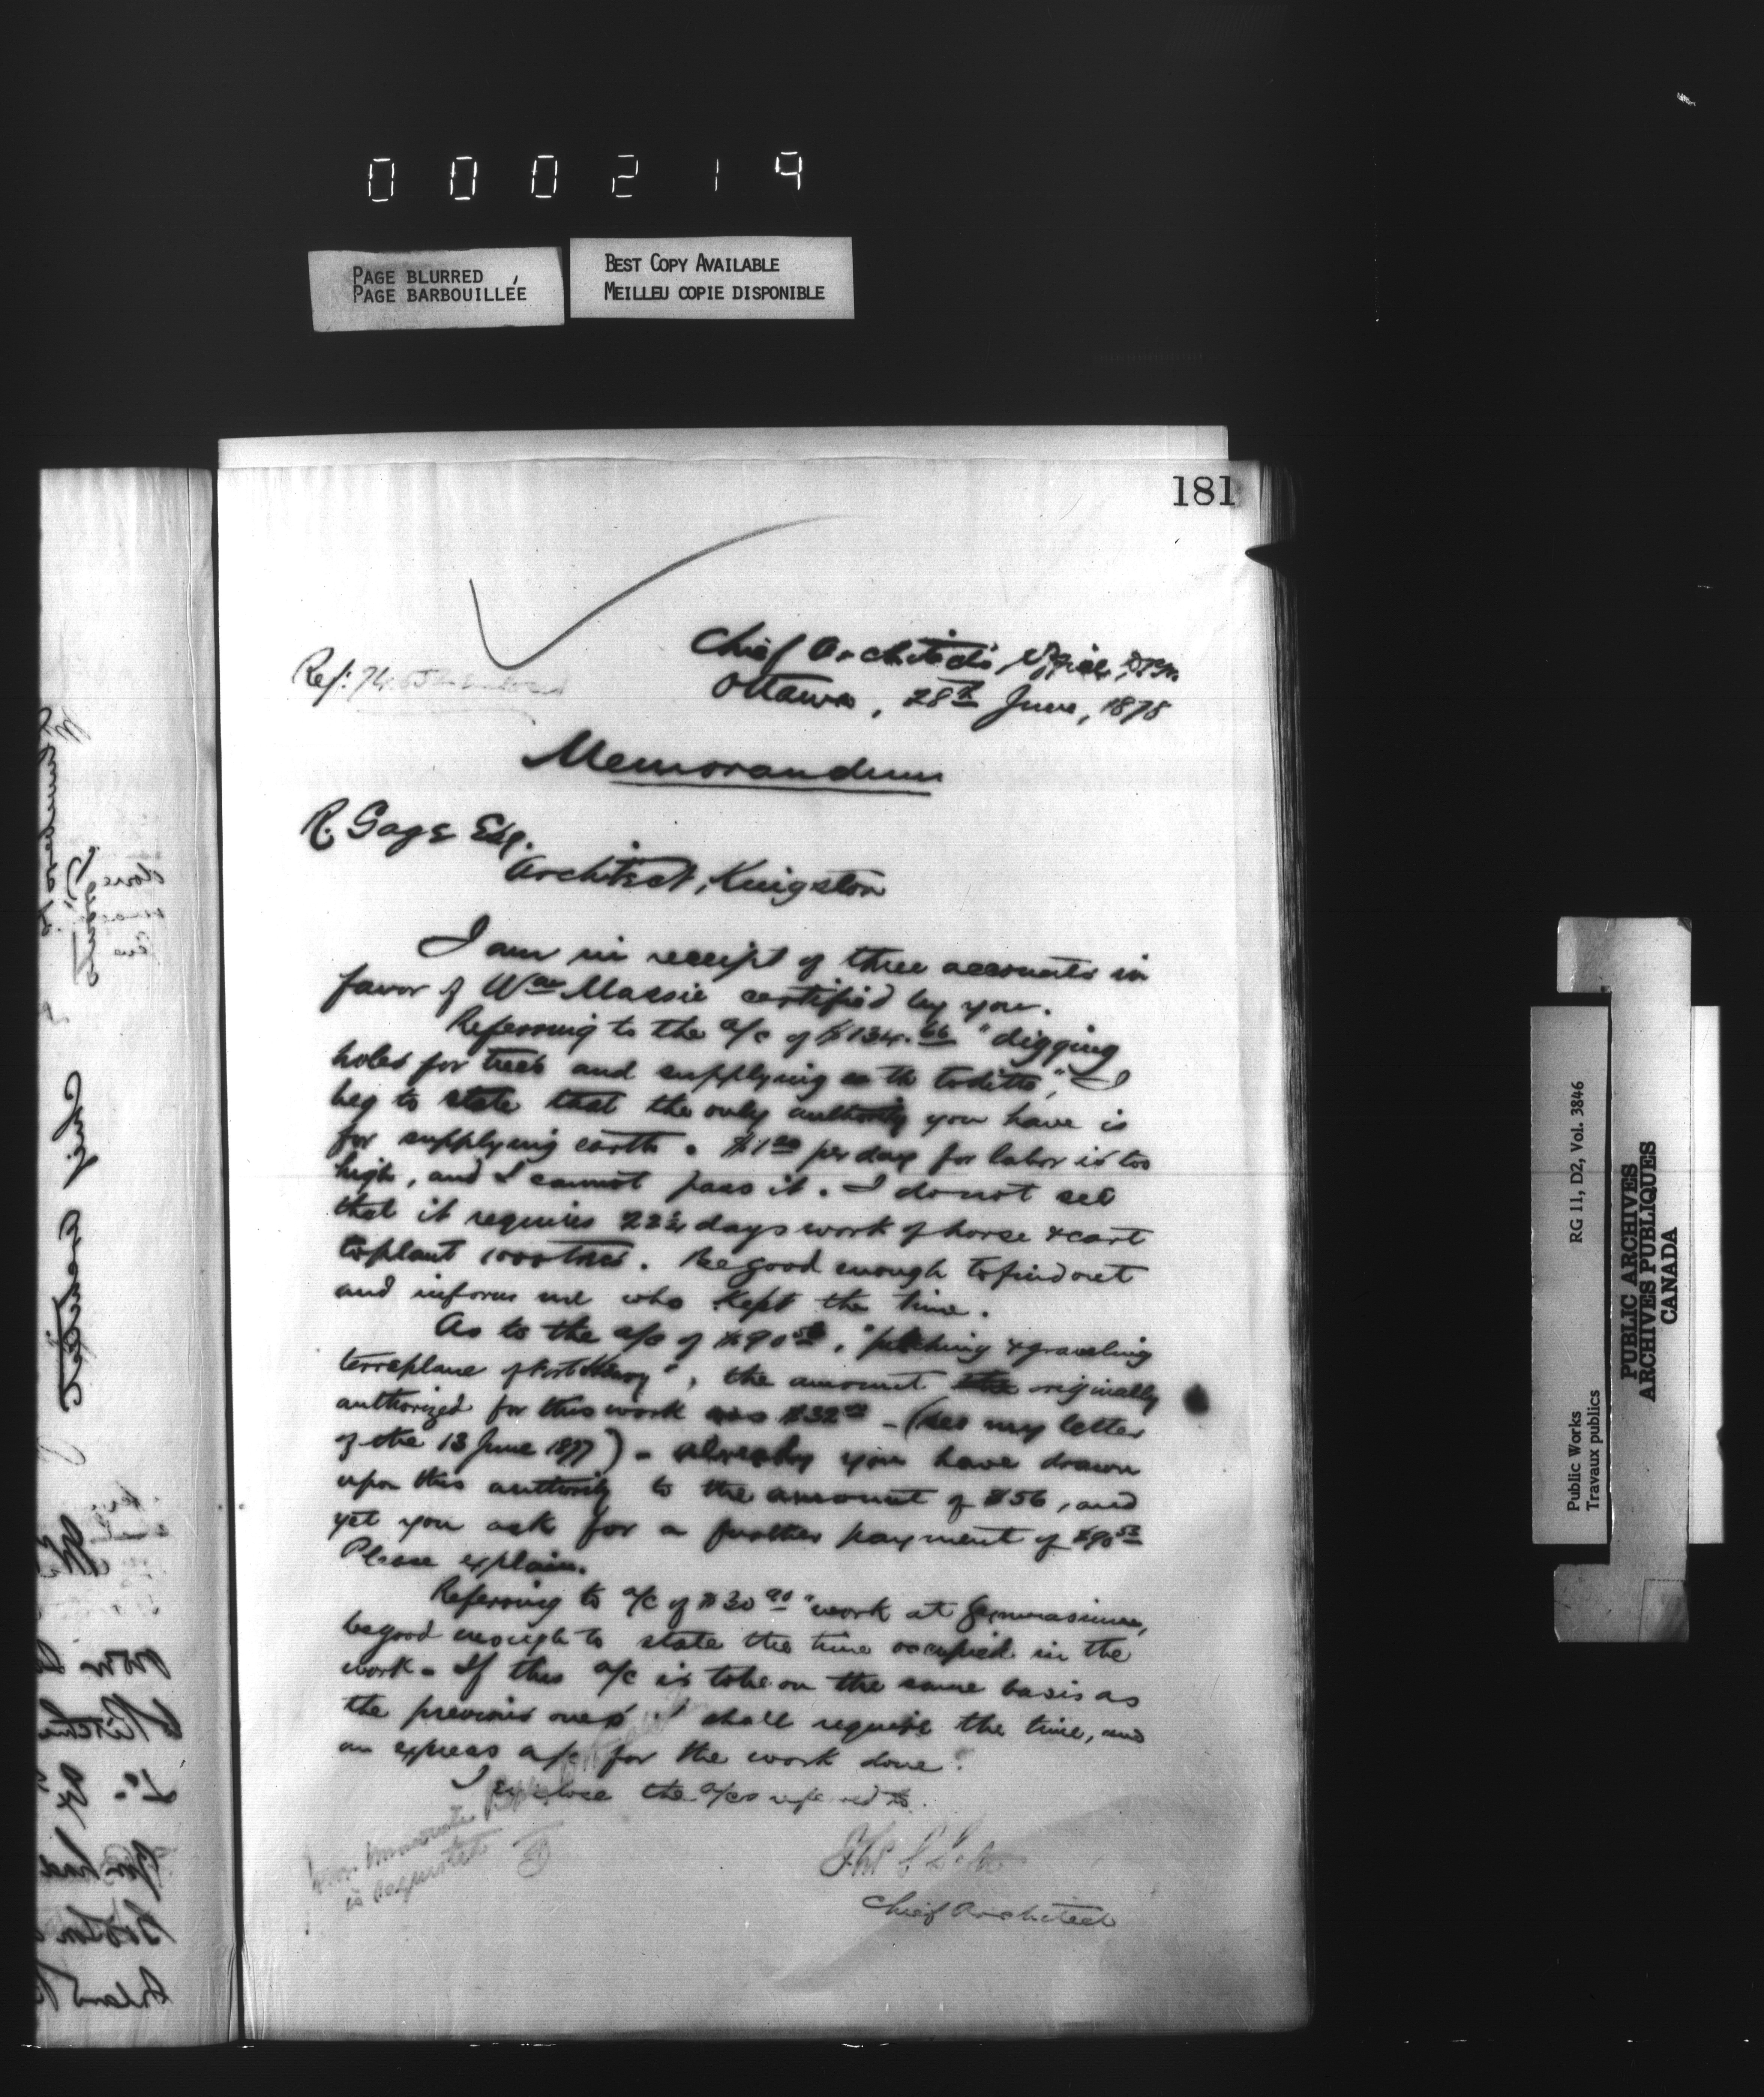 000219
PAGE BLURRED
PAGE BARBOUILLÉE
BEST COPY AVAILABLE
MEILLEU COPIE DISPONIBLE
181
Chief Architect's Office,
Ref:
Ottawa, 28th June, 1878
Memorandum
R. Gage Esq.
Architect, Kingston
I am in receipt of three accounts in
favor of Wm Massie certified by you.
Referring to the a/c of $134.66 "digging
holes for trees and supplying earth to ditto", I
beg to state that the only authority you have is
for supplying earth. per day for labor is too
high, and I cannot pass it. I do not see
that it requires 22½ days work of horse & cart
to plant 1000 trees. Be good enough to find out
and inform me who kept the time.
As to the a/c of "pitching & graveling
terreplane of Fort Henry", the amount originally
authorized for this work was $32 - (see my letter
of the 13 June 1877) - already you have drawn
upon this authority to the amount of $56, and
yet you ask for a further payment of
Please explain.
Referring to a/c of "work at Gymnasium,
be good enough to state the time occupied in the
work - If this a/c is to be on the same basis as
the previous ones I shall require the time, and
an express a/c for the work done.
I enclose the a/cs referred to.
Chief Architect
RG 11, D2, Vol. 3846
Public Works
Travaux publics
PUBLIC ARCHIVES
ARCHIVES PUBLIQUES
CANADA